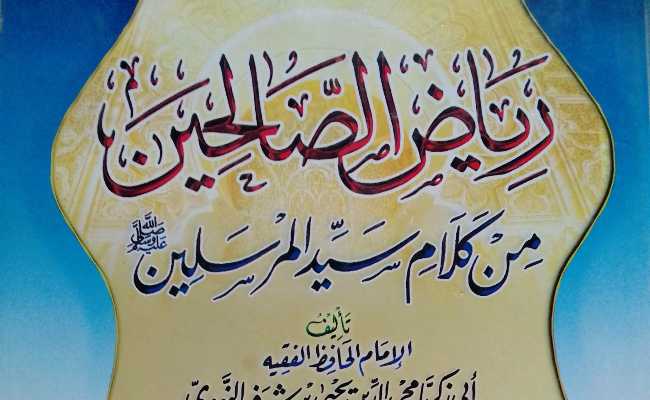 رياض الصالحين
من كلام سيد المرسلين ﷺ
تأليف
الإمام الحافظ الفقيه
أبي زكريا محيي الدين يحيى بن شرف النووي